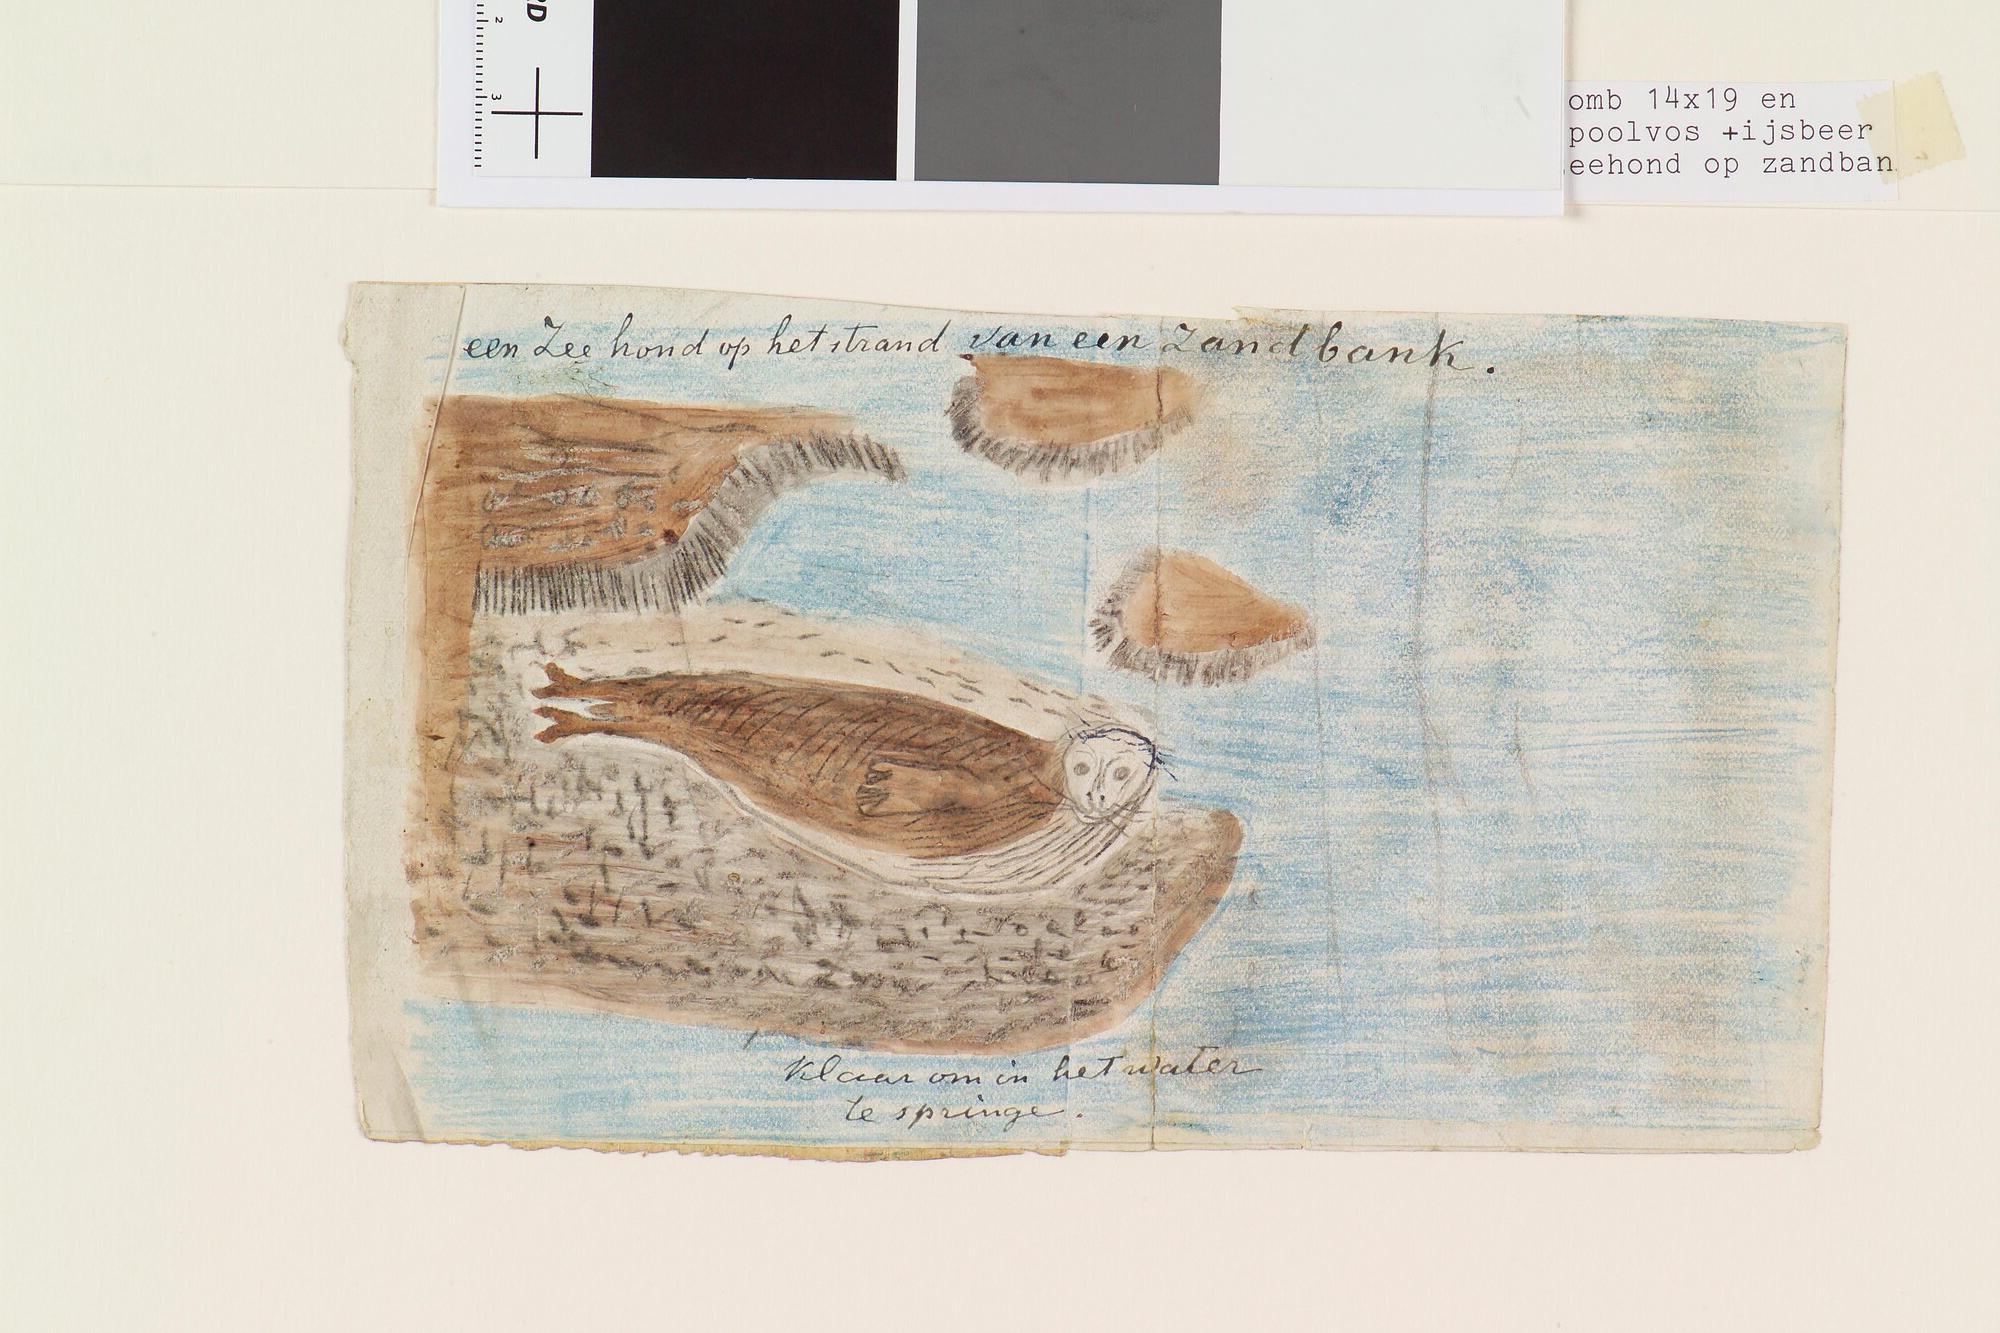 2
3
omb 14x19 en
poolvos +ijsbeer
eehond op zandban
een Zee hond op het strand van een Zandbank.
Klaar om in het water
te springe.